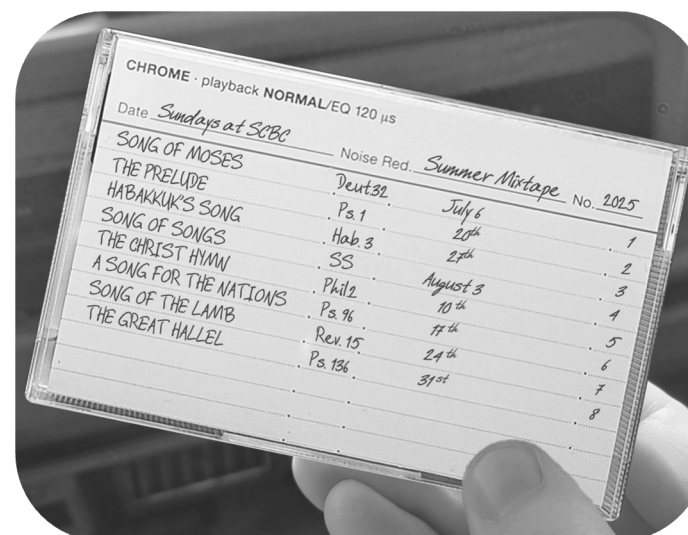 CHROME · playback NORMAL/EQ 120 µs
Date Sundays at SCBC Noise Red. Summer Mixtape No. 2025
SONG OF MOSES Deut32 July 6 1
THE PRELUDE Ps. 1 20th 2
HABAKKUK'S SONG Hab. 3 27th 3
SONG OF SONGS SS August 3 4
THE CHRIST HYMN Phil2 10th 5
A SONG FOR THE NATIONS Ps. 96 17th 6
SONG OF THE LAMB Rev. 15 24th 7
THE GREAT HALLEL Ps. 136 31st 8